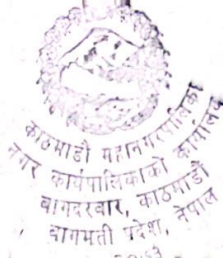 काठमाडौं महानगरपालिका
नगर कार्यपालिकाको कार्यालय
बागदरवार, काठमाडौं
बागमती प्रदेश, नेपाल